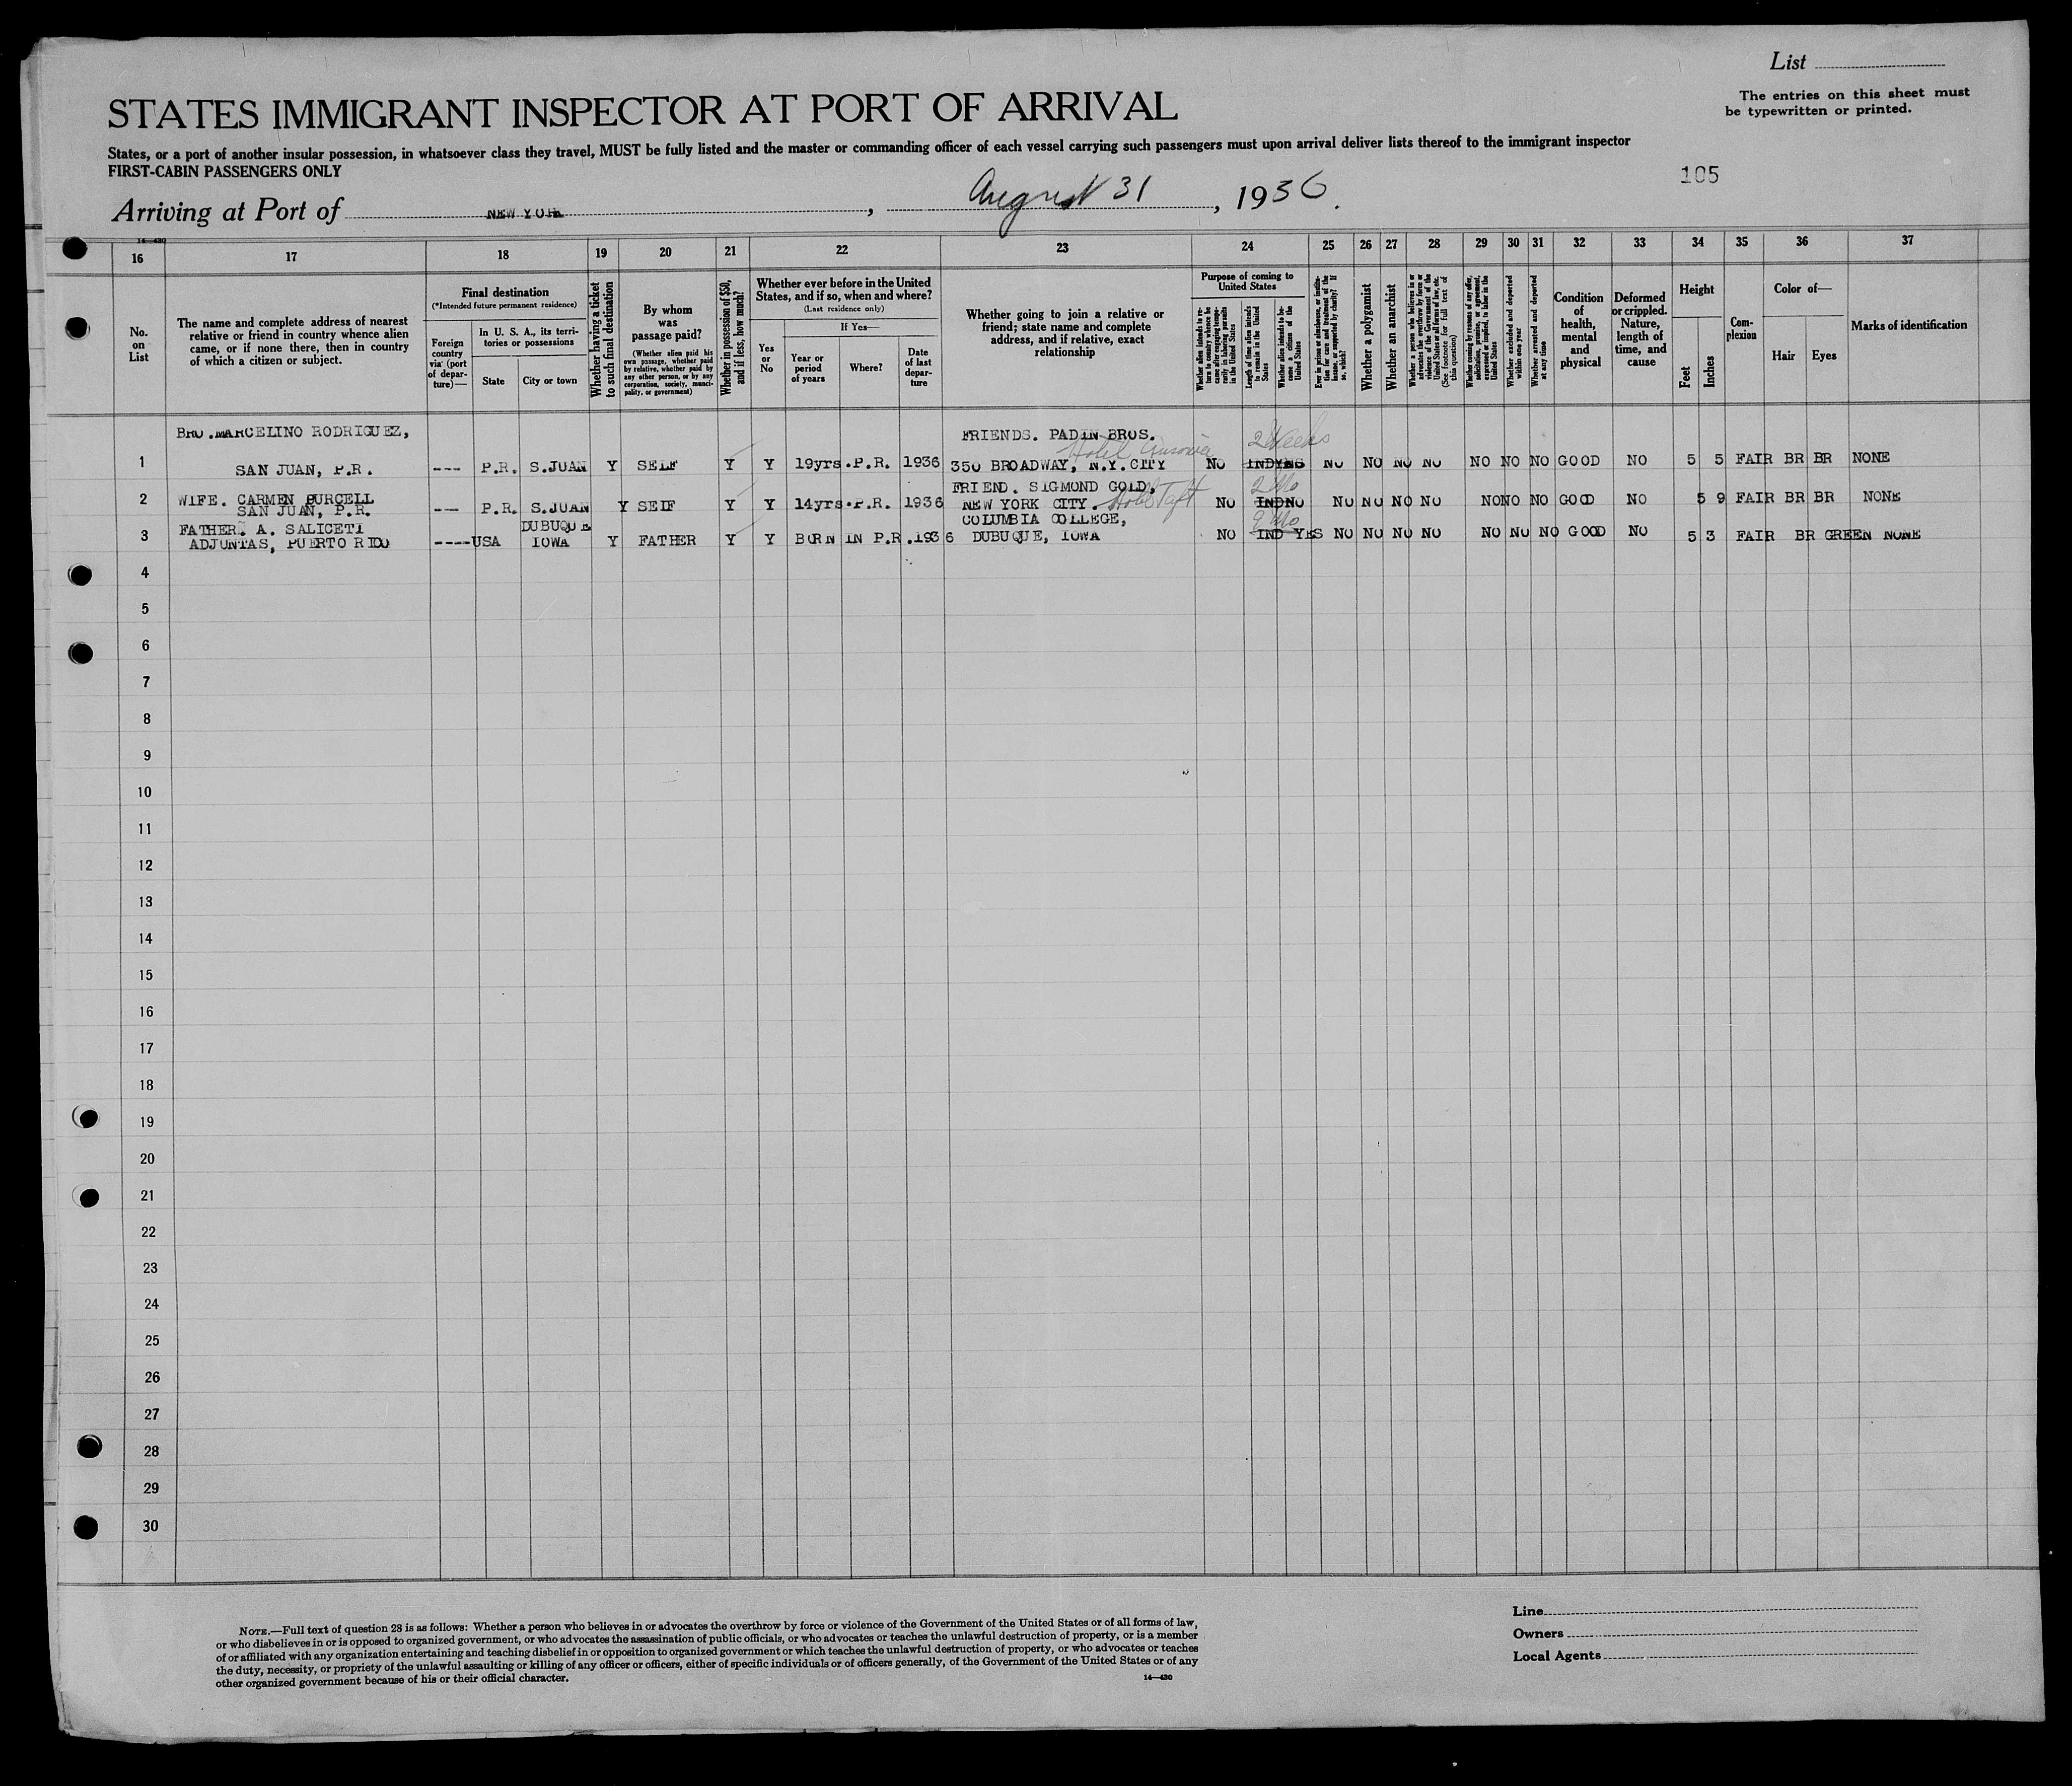 List
The entries on this sheet must
be typewritten or printed.
STATES IMMIGRANT INSPECTOR AT PORT OF ARRIVAL
States, or a port of another insular possession, in whatsoever class they travel, MUST be fully listed and the master or commanding officer of each vessel carrying such passengers must upon arrival deliver lists thereof to the immigrant inspector
FIRST-CABIN PASSENGERS ONLY
105
Arriving at Port of NEW YORK, August 31, 1936.
14—430
16 17 18 19 20 21 22 23 24 25 26 27 28 29 30 31 32 33 34 35 36 37
No.
on
List
The name and complete address of nearest
relative or friend in country whence alien
came, or if none there, then in country
of which a citizen or subject.
Final destination
(*Intended future permanent residence)
Foreign
country
via (port
of depar-
ture)—
In U. S. A., its terri-
tories or possessions
State
City or town
Whether having a ticket
to such final destination
By whom
was
passage paid?
(Whether alien paid his
own passage, whether paid
by relative, whether paid by
any other person, or by any
corporation, society, munici-
pality, or government)
Whether in possession of $50,
and if less, how much?
Whether ever before in the United
States, and if so, when and where?
(Last residence only)
If Yes—
Yes
or
No
Year or
period
of years
Where?
Date
of last
depar-
ture
Whether going to join a relative or
friend; state name and complete
address, and if relative, exact
relationship
Purpose of coming to
United States
Whether alien intends to re-
turn to country whence he
came after engaging tempo-
rarily in laboring pursuits
in the United States
Length of time alien intends
to remain in the United
States
Whether alien intends to be-
come a citizen of the
United States
Ever in prison or almshouse, or institu-
tion for care and treatment of the
insane, or supported by charity? If
so, which?
Whether a polygamist
Whether an anarchist
Whether a person who believes in or
advocates the overthrow by force or
violence of the Government of the
United States or all forms of law, etc.
(See footnote for full text of
this question)
Whether coming by reasons of any offer,
solicitation, promise, or agreement,
expressed or implied, to labor in the
United States
Whether excluded and deported
within one year
Whether arrested and deported
at any time
Condition
of
health,
mental
and
physical
Deformed
or crippled.
Nature,
length of
time, and
cause
Height
Feet
Inches
Com-
plexion
Color of—
Hair
Eyes
Marks of identification
BRO.MARCELINO RODRIGUEZ, FRIENDS. PADIN BROS. 2 Weeks
Hotel
1 SAN JUAN, P.R. --- P.R. S.JUAN Y SELF Y Y 19yrs.P.R. 1936 350 BROADWAY, N.Y.CITY NO INDYES NO NO NO NO NO NO NO GOOD NO 5 5 FAIR BR BR NONE
FRIEND. SIGMOND GOLD, 2 Mo
2 WIFE. CARMEN PURCELL
SAN JUAN, P.R. --- P.R. S.JUAN Y SELF Y Y 14yrs.P.R. 1936 NEW YORK CITY. Hotel Taft NO INDNO NO NO NO NO NO NO NO GOOD NO 5 9 FAIR BR BR NONE
FATHER. A. SALICETI DUBUQUE COLUMBIA COLLEGE, 9 Mo
3 ADJUNTAS, PUERTO RICO ----USA IOWA Y FATHER Y Y BORN IN P.R.1936 DUBUQUE, IOWA NO IND YES NO NO NO NO NO NO NO GOOD NO 5 3 FAIR BR GREEN NONE
4
5
6
7
8
9
10
11
12
13
14
15
16
17
18
19
20
21
22
23
24
25
26
27
28
29
30
NOTE.—Full text of question 28 is as follows: Whether a person who believes in or advocates the overthrow by force or violence of the Government of the United States or of all forms of law,
or who disbelieves in or is opposed to organized government, or who advocates the assassination of public officials, or who advocates or teaches the unlawful destruction of property, or is a member
of or affiliated with any organization entertaining and teaching disbelief in or opposition to organized government or which teaches the unlawful destruction of property, or who advocates or teaches
the duty, necessity, or propriety of the unlawful assaulting or killing of any officer or officers, either of specific individuals or of officers generally, of the Government of the United States or of any
other organized government because of his or their official character.
14—430
Line
Owners
Local Agents